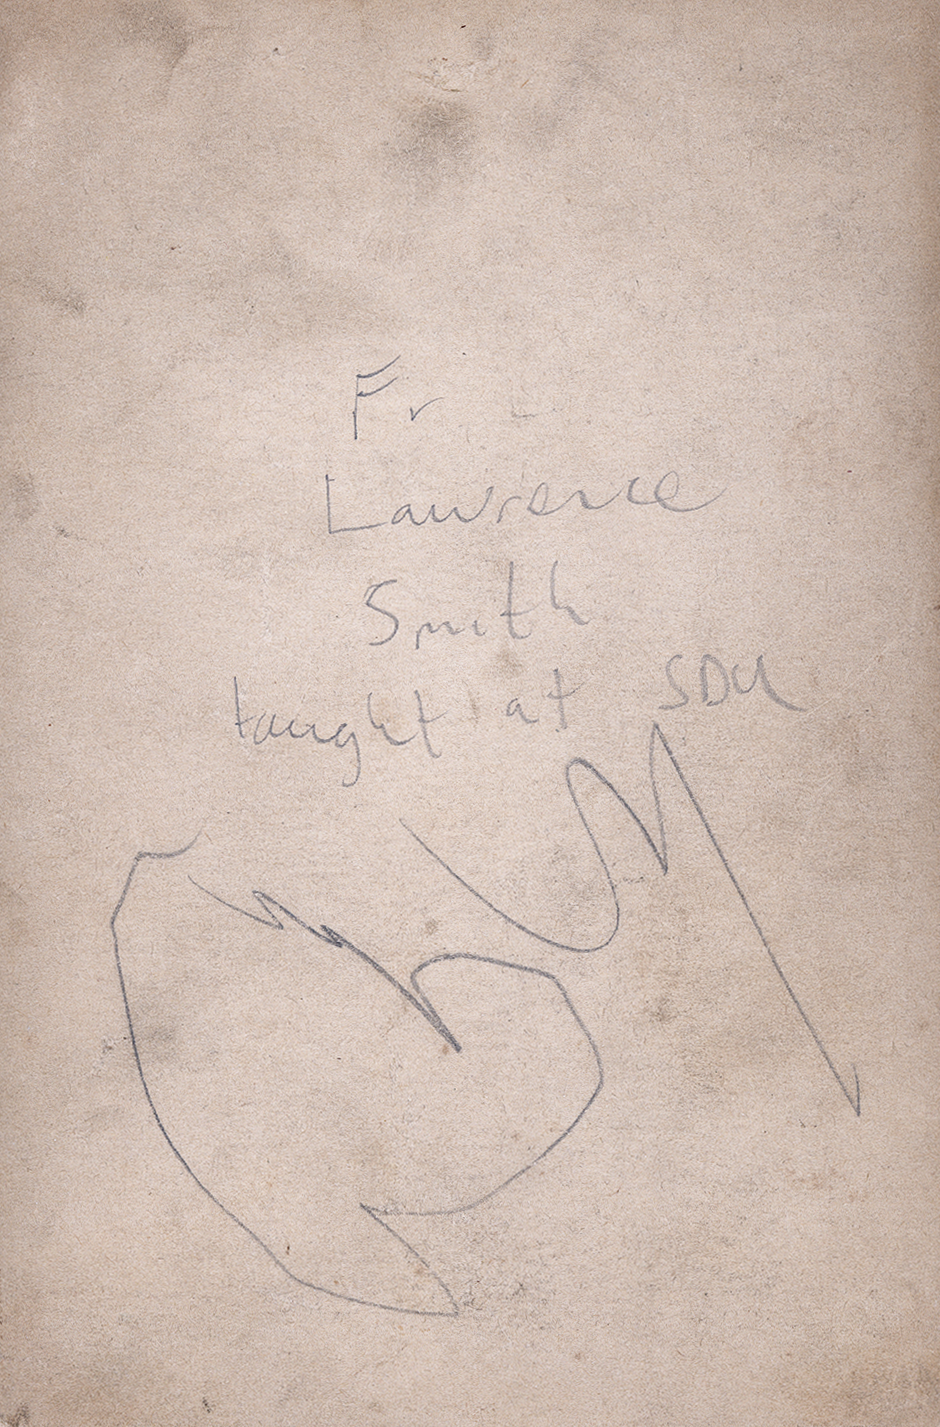 Fr
Lawrence
Smith
taught at SDU